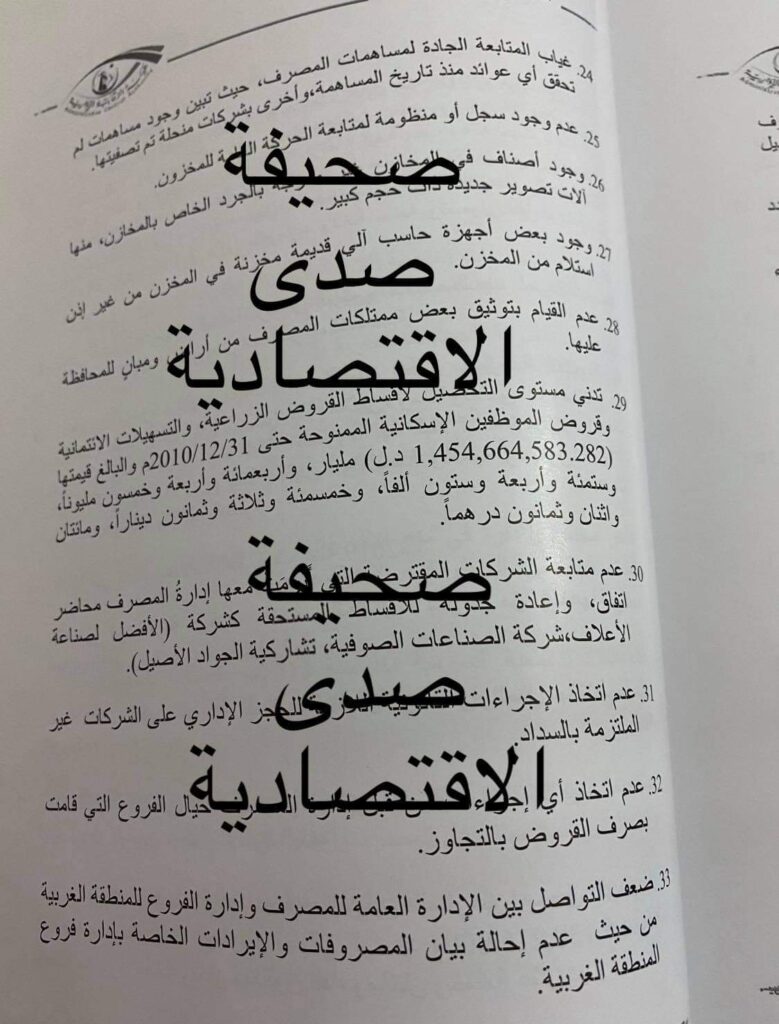 24. غياب المتابعة الجادة لمساهمات المصرف، حيث تبين وجود مساهمات لم
تحقق أي عوائد منذ تاريخ المساهمة،وأخرى بشركات منحلة تم تصفيتها.
25. عدم وجود سجل أو منظومة لمتابعة الحركة للمخزون.
صحيفة
26. وجود أصناف في المخازن بالجرد الخاص بالمخازن، منها
آلات تصوير جديدة ذات حجم كبير.
27. وجود بعض أجهزة حاسب آلي قديمة مخزنة في المخزن من غير إذن
استلام من المخزن.
صدى
28. عدم القيام بتوثيق بعض ممتلكات المصرف من أراضٍ ومبانٍ للمحافظة
عليها.
الاقتصادية
29. تدني مستوى التحصيل لأقساط القروض الزراعية، والتسهيلات الائتمانية
وقروض الموظفين الإسكانية الممنوحة حتى 2010/12/31م والبالغ قيمتها
(1,454,664,583.282 د.ل) مليار، وأربعمائة وأربعة وخمسون مليوناً،
وستمئة وأربعة وستون ألفاً، وخمسمئة وثلاثة وثمانون ديناراً، ومائتان
واثنان وثمانون درهماً.
30. عدم متابعة الشركات المقترضة التي معها إدارةُ المصرف محاضر
صحيفة
اتفاق، وإعادة جدولة للأقساط المستحقة كشركة (الأفضل لصناعة
الأعلاف،شركة الصناعات الصوفية، تشاركية الجواد الأصيل).
31. عدم اتخاذ الإجراءات القانونية اللازمة للحجز الإداري على الشركات غير
صدى
الملتزمة بالسداد.
32. عدم اتخاذ أي إجراء من قبل إدارة المصرف حيال الفروع التي قامت
الاقتصادية
بصرف القروض بالتجاوز.
33. ضعف التواصل بين الإدارة العامة للمصرف وإدارة الفروع للمنطقة الغربية
من حيث عدم إحالة بيان المصروفات والإيرادات الخاصة بإدارة فروع
المنطقة الغربية.